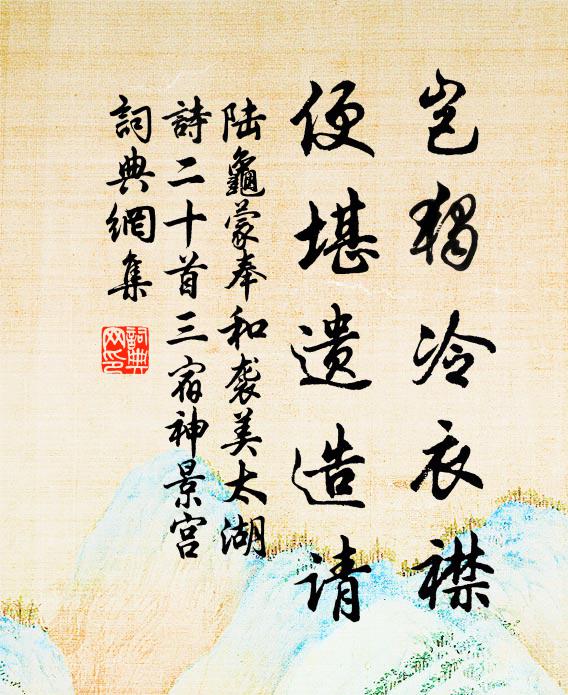 岂獨冷衣襟
便堪遗造请
陆龜蒙奉和袭美太湖
詩二十首三宿神景宫
詞典網集
詞典網印